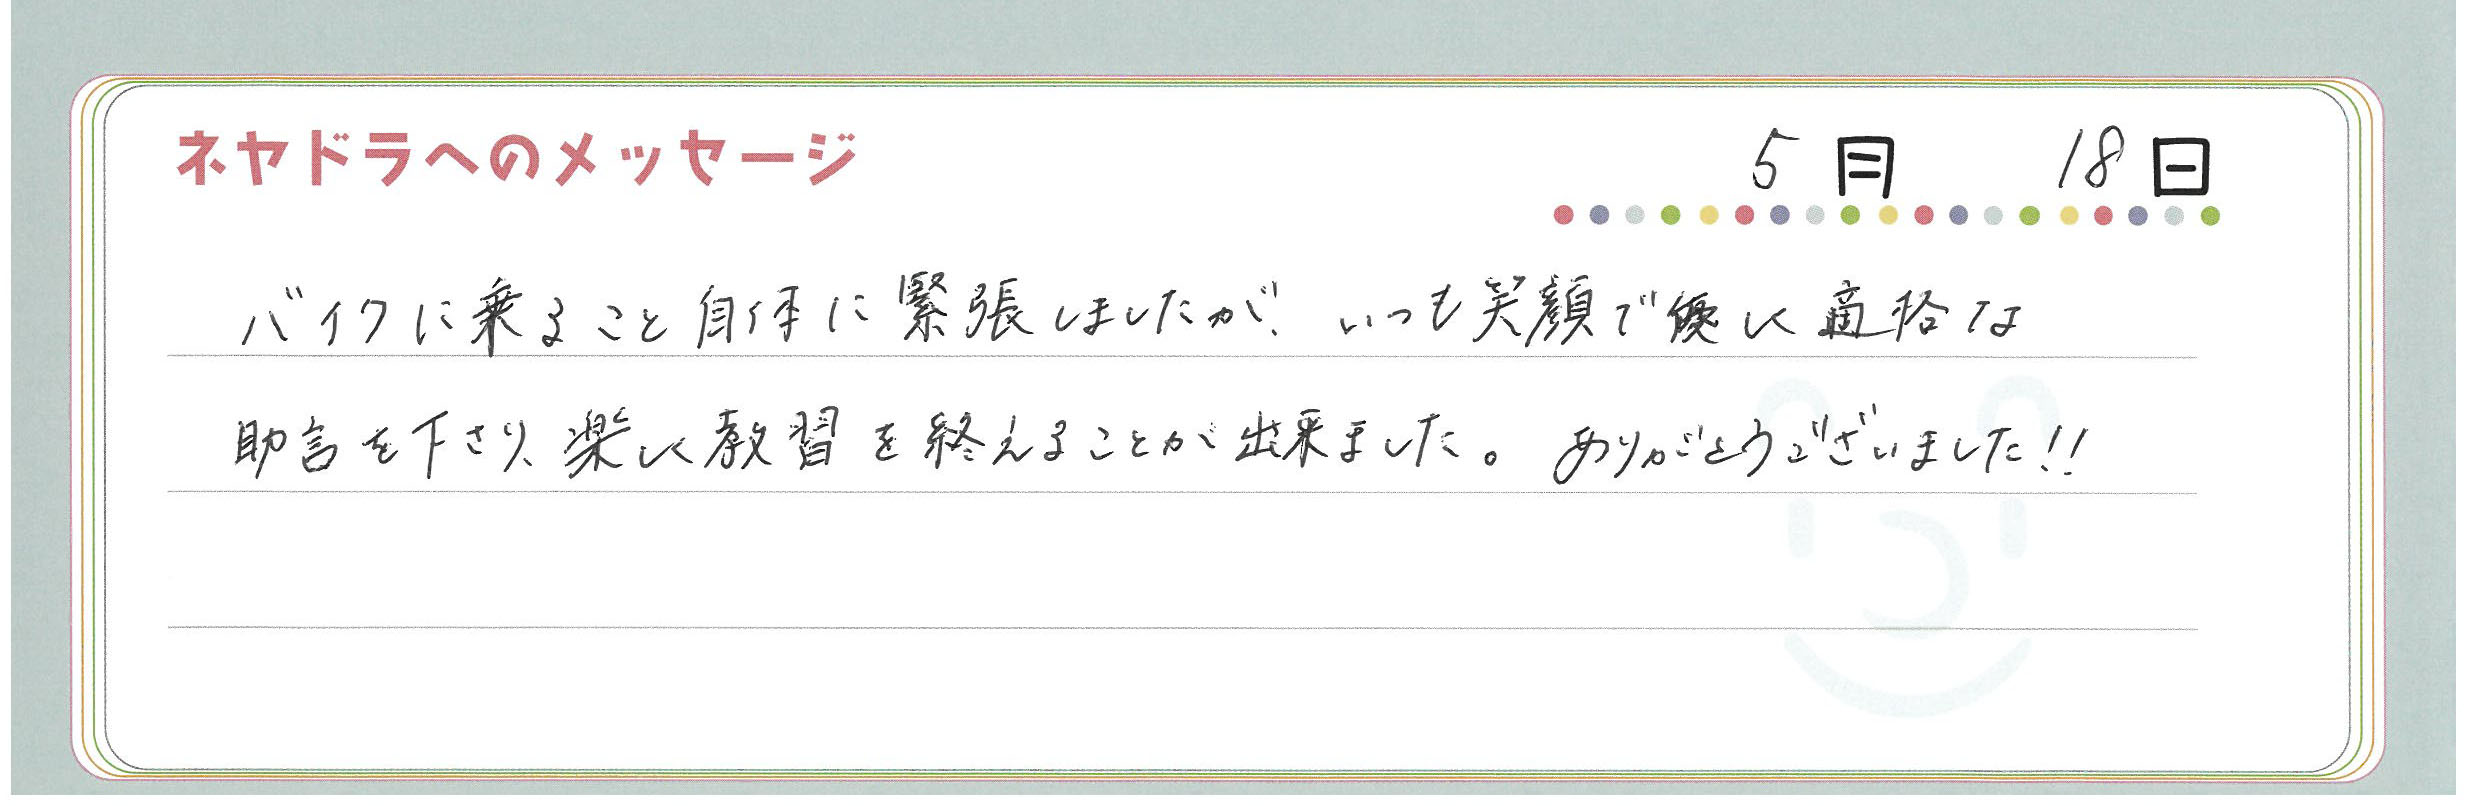 ネヤドラへのメッセージ
5月 18日
バイクに乗ること自体に緊張しましたが、いつも笑顔で優しく適格な
助言を下さり、楽しく教習を終えることが出来ました。ありがとうございました!!